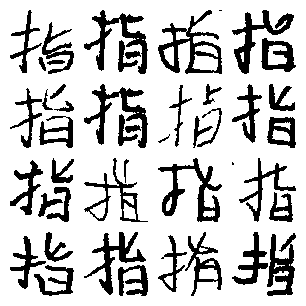 指指指指
指指指指
指指指指
指指指指